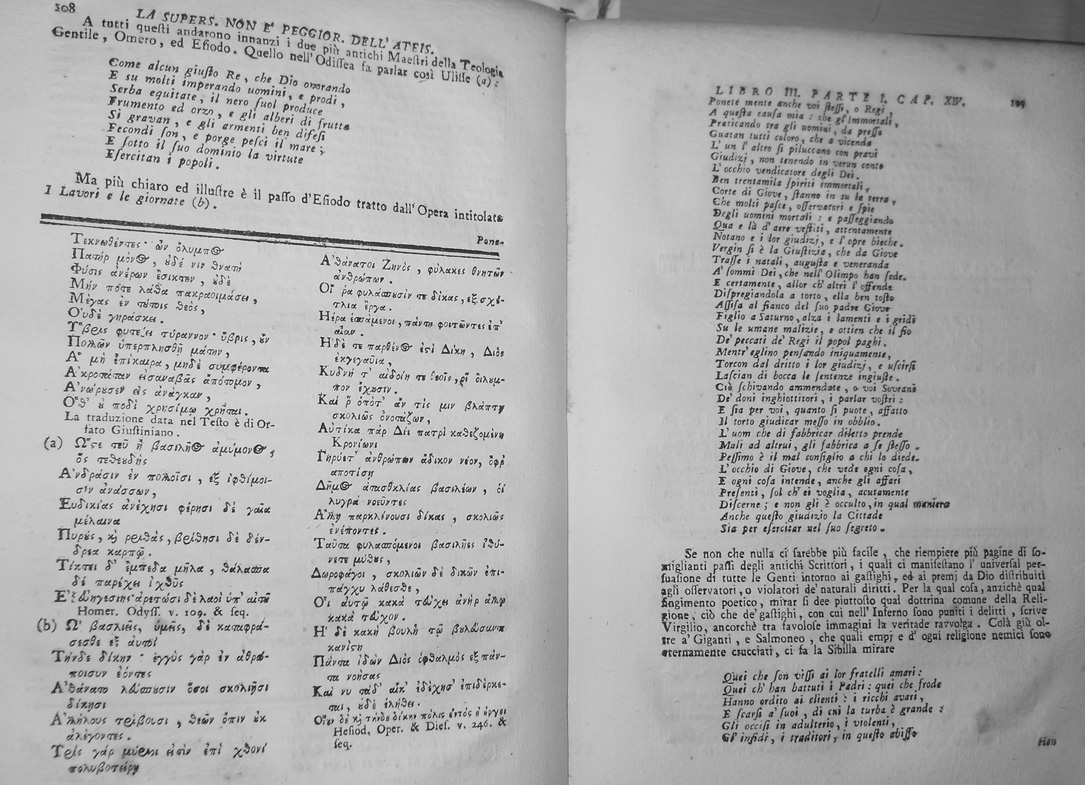 208
LA SUPERS. NON E' PEGGIOR. DELL' ATEIS.
A tutti queſti andarono innanzi i due più antichi Maeſtri della Teologia
Gentile, Omero, ed Eſiodo. Quello nell'Odiſſea fa parlar così Uliſſe (a):
Come alcun giuſto Re, che Dio onorando
E su molti imperando uomini, e prodi,
Serba equitate, il nero ſuol produce
Frumento ed orzo, e gli alberi di frutta
Si gravan, e gli armenti ben difeſi
Fecondi ſon, e porge peſci il mare;
E ſotto il ſuo dominio la virtute
Eſercitan i popoli.
Ma più chiaro ed illuſtre è il paſſo d'Eſiodo tratto dall'Opera intitolata
I Lavori e le giornate (b).
Pone-
Τεκνωθέντες· ὧν ὄλυμπος
Πατὴρ μόνος, ἐδέ νιν θνατὴ
Φύσις ἀνέρων ἔτικτεν, ἐδὲ
Μήν ποτε λάθα
Μέγας ἐν τούτοις θεὸς,
Οὐδὲ γηράσκει.
Ὕβρις φυτεύει τύραννον· ὕβρις, ἢν
Πολλῶν ὑπερπλησθῇ μάταν,
Ἃ μὴ ἐπίκαιρα, μηδὲ συμφέροντα
Ἀκροτάταν εἰσαναβᾶς ἀπότομον,
Ἀνώρουσεν εἰς ἀνάγκαν,
Ὅθ' ὐ ποδὶ χρησίμῳ χρῆται.
La traduzione data nel Teſto è di Or-
ſato Giuſtiniano.
(a) Ὥςτε τεῦ ἢ βασιλῆος ἀμύμονος,
ὅς τεθεουδὴς
Ἀνδράσιν ἐν πολλοῖσι, ἐξ ἰφθίμοι-
σιν ἀνάσσων,
Εὐδικίας ἀνέχησι φέρησι δὲ γαῖα
μέλαινα
Πυρὺς, κ̀ κριθὰς, βρίθησι δὲ δέν-
δρεα καρπῷ.
Τίκτει δ' ἔμπεδα μῆλα, θάλασσα
δὲ παρέχει ἰχθῦς
Ἐξ εὐηγεσίης· ἀρετῶσι δὲ λαοὶ ὑπ' αὐτοῦ
Homer. Odyſſ. v. 109. & ſeq.
(b) Ὦ βασιλῆς, ὑμεῖς, δὲ καταφρά-
ζεσθε ἐξ αὐτοὶ
Τήνδε δίκην· ἐγγὺς γὰρ ἐν ἀνθρώ-
ποισιν ἐόντες
Ἀθάνατοι λεύσσουσιν ὅσοι σκολιῇσι
δίκῃσι
Ἀλλήλους τρίβουσι, θεῶν ὄπιν ἐκ
ἀλέγοντες.
Τρὶς γὰρ μύριοι εἰσὶν ἐπὶ χθονὶ
πολυβοτείρῃ
Ἀθάνατοι Ζηνὸς, φύλακες θνητῶν
ἀνθρώπων.
Οἵ ρα φυλάσσουσιν τε δίκας, ἐξ σχέ-
τλια ἔργα.
Ἠέρα ἑσσάμενοι, πάντῃ φοιτῶντες ἐπ'
αἶαν.
Ἡ δέ τε παρθένος ἐςὶ Δίκη, Διὸς
ἐκγεγαυῖα,
Κυδνή τ' αἰδοίη τε θεοῖς, οἳ ὄλυμ-
πον ἔχουσιν.
Καὶ ῥ ὁπότ' ἄν τίς μιν βλάπτῃ
σκολιῶς ὀνοτάζων,
Αὐτίκα πὰρ Διὶ πατρὶ καθεζομένη
Κρονίωνι
Γηρύετ' ἀνθρώπων ἄδικον νόον, ὄφρ'
ἀποτίσῃ
Δῆμος ἀτασθαλίας βασιλέων, οἳ
λυγρὰ νοεῦντες
Ἄλλῃ παρκλίνουσι δίκας, σκολιῶς
ἐνέποντες.
Ταῦτα φυλασσόμενοι βασιλῆες ἰθύ-
νετε μύθους,
Δωροφάγοι, σκολιῶν δὲ δικῶν ἐπι-
πάγχυ λάθεσθε,
Οἷ αὐτῷ κακὰ τεύχει ἀνὴρ ἄλλῳ
κακὰ τεύχων.
Ἡ δὲ κακὴ βουλὴ τῷ βουλεύσαντι
κακίστη
Πάντα ἰδὼν Διὸς ὀφθαλμὸς ἐξ πάν-
τα νοήσας
Καί νυ τάδ' αἴκ' ἐθέλῃσ' ἐπιδέρκε-
ται, ἐδέ ἑ λήθει.
Οἵην δὲ κ̀ τήνδε δίκην πόλις ἐντὸς ἐέργει
Heſiod. Oper. & Dieſ. v. 246. &
ſeq.
LIBRO III. PARTE I. CAP. XIV.
199
Ponete mente anche voi ſteſſi, o Regi
A queſta cauſa mia: che gl'immortali,
Praticando tra gli uomini, da preſſo
Guatan tutti coloro, che a vicenda
L' un l' altro ſi piluccano con pravi
Giudizj, non tenendo in verun conto
L' occhio vendicatore degli Dei.
Ben trentamila ſpiriti immortali,
Corte di Giove, ſtanno in su la terra,
Che molti paſce, oſſervatori e ſpie
Degli uomini mortali: e paſſeggiando
Qua e là d'aere veſtiti, attentamente
Notano e i lor giudizj, e l'opre bieche.
Vergin ſi è la Giuſtizia, che da Giove
Traſſe i natali, auguſta e veneranda
A' ſommi Dei, che nell'Olimpo han ſede.
E certamente, allor ch'altri l'offende
Diſpregiandola a torto, ella ben toſto
Aſſiſa al fianco del ſuo padre Giove
Figlio a Saturno, alza i lamenti e i gridi
Su le umane malizie, e ottien che il fio
De' peccati de' Regi il popol paghi.
Mentr'eglino penſando iniquamente,
Torcon dal dritto i lor giudizj, e uſcirſi
Laſcian di bocca le ſentenze ingiuſte.
Ciò ſchivando ammendate, o voi Sovrani
De' doni inghiottitori, i parlar voſtri:
E ſia per voi, quanto ſi puote, affatto
Il torto giudicar meſſo in obblio.
L'uom che di fabbricar diletto prende
Mali ad altrui, gli fabbrica a ſe ſteſſo.
Peſſimo è il mal conſiglio a chi lo diede.
L'occhio di Giove, che vede ogni coſa,
E ogni coſa intende, anche gli affari
Preſenti, ſol ch' ei voglia, acutamente
Diſcerne; e non gli è occulto, in qual maniera
Anche queſto giudizio la Cittade
Sia per eſercitar nel ſuo ſegreto.
Se non che nulla ci ſarebbe più facile, che riempiere più pagine di ſo-
miglianti paſſi degli antichi Scrittori, i quali ci manifeſtano l' univerſal per-
ſuaſione di tutte le Genti intorno ai gaſtighi, ed ai premj da Dio diſtribuiti
agli oſſervatori, o violatori de' naturali diritti. Per la qual coſa, anzichè qual
fingimento poetico, mirar ſi dee piuttoſto qual dottrina comune della Reli-
gione, ciò che de' gaſtighi, con cui nell'Inferno ſono puniti i delitti, ſcrive
Virgilio, ancorchè tra favoloſe immagini la veritade ravvolga. Colà giù ol-
tre a' Giganti, e Salmoneo, che quali empj e d' ogni religione nemici ſono
eternamente crucciati, ci fa la Sibilla mirare
Quei che ſon viſſi ai lor fratelli amari:
Quei ch' han battuti i Padri: quei che frode
Hanno ordito ai clienti: i ricchi avari,
E ſcarſi a' ſuoi, di cui la turba è grande:
Gli occiſi in adulterio, i violenti,
Gl' infidi, i traditori, in queſto abiſſo
Han